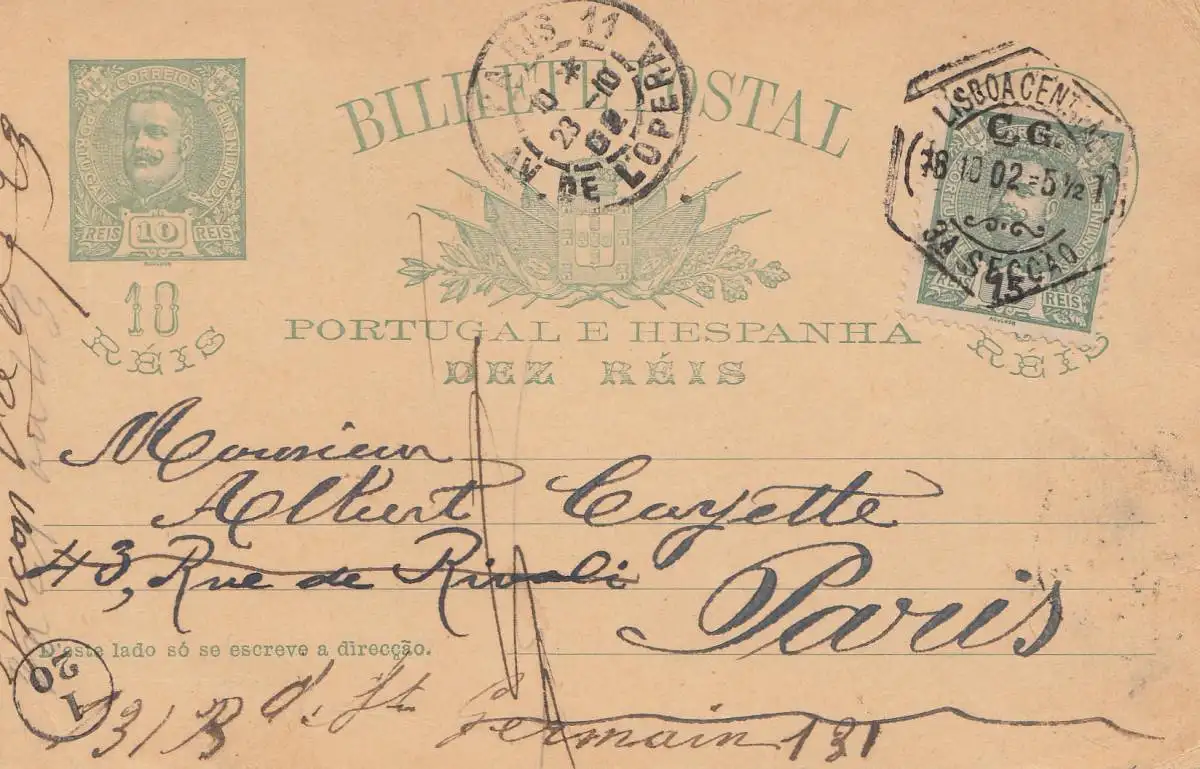 CORREIOS
PORTUGAL
CONTINENTE
REIS 10 REIS
10
RÉIS
BILHETE POSTAL
PORTUGAL E HESPANHA
DEZ RÉIS
PARIS 11
AV. DE L'OPERA
10 * 10
23 -
02
LISBOA CENTRAL
C.G.
18 10 02 -5 1/2 T
3A SECÇÃO
15
REIS
RÉIS
Monsieur
Albert Cayette
43, Rue de Rivoli
Paris
D'este lado só se escreve a direcção.
131 Bd. St Germain 131